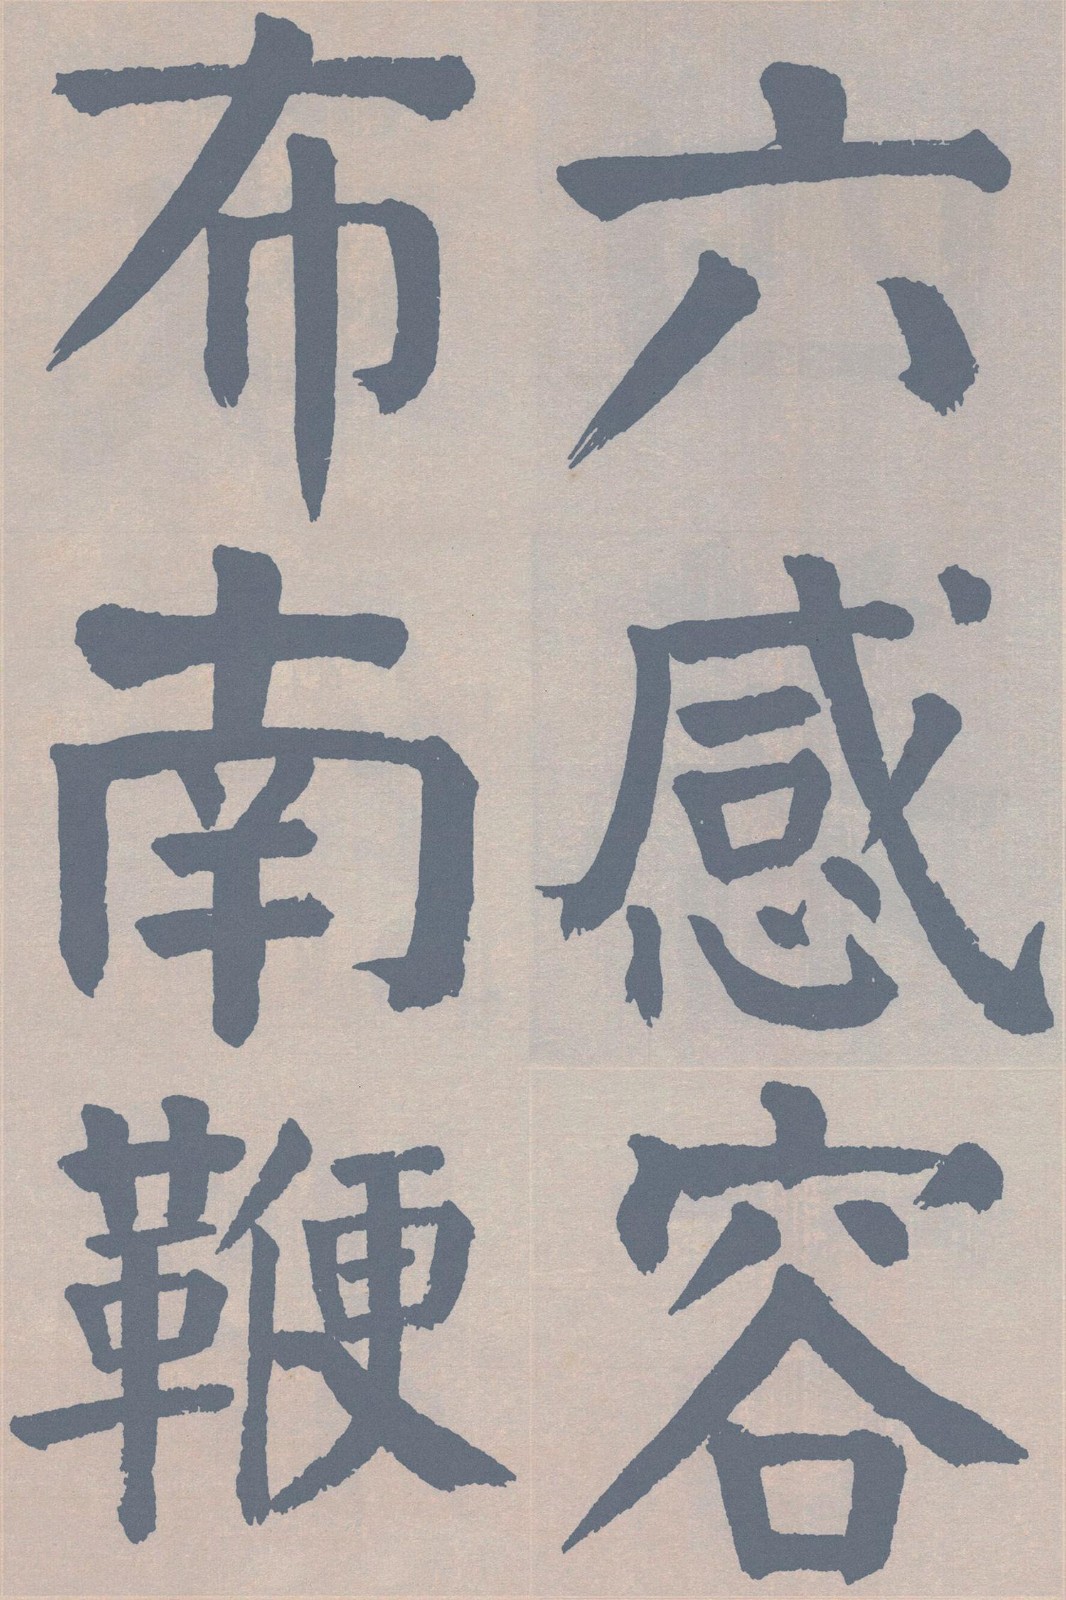 六感容
布南鞭